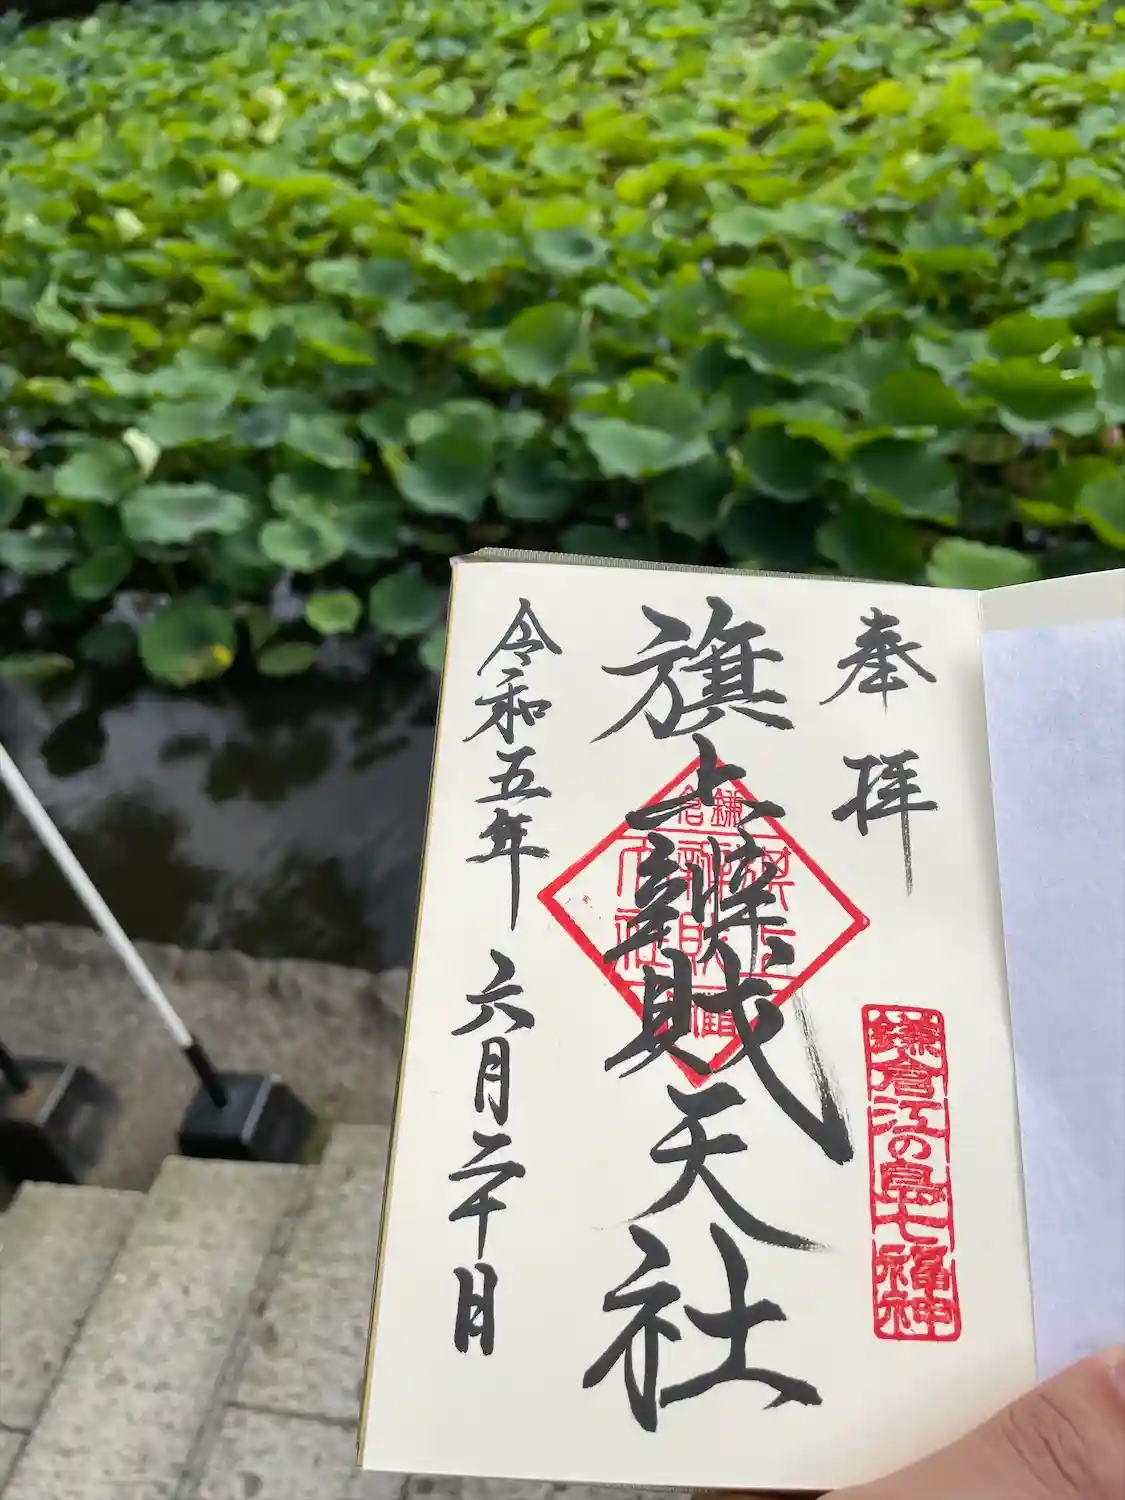 奉拝
鎌倉江の島七福神
旗上辨財天社
令和五年六月二十日